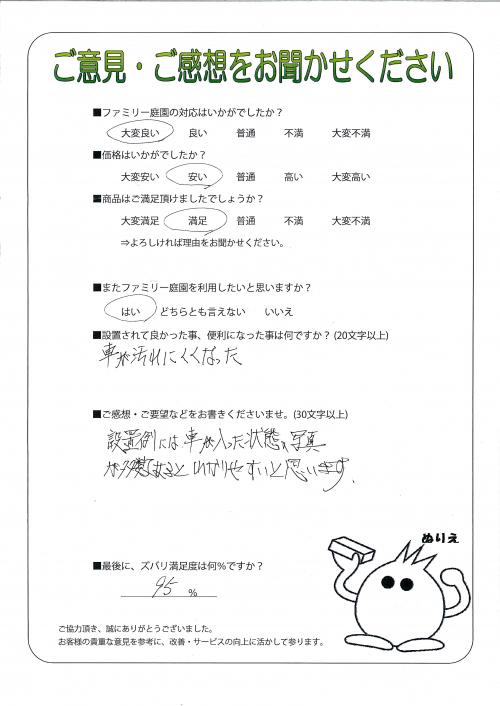 ご意見・ご感想をお聞かせください
■ファミリー庭園の対応はいかがでしたか？
大変良い 良い 普通 不満 大変不満
■価格はいかがでしたか？
大変安い 安い 普通 高い 大変高い
■商品はご満足頂けましたでしょうか？
大変満足 満足 普通 不満 大変不満
⇒よろしければ理由をお聞かせください。
■またファミリー庭園を利用したいと思いますか？
はい どちらとも言えない いいえ
■設置されて良かった事、便利になった事は何ですか？(20文字以上)
車が汚れにくくなった
■ご感想・ご要望などをお書きくださいませ。(30文字以上)
設置例には車が入った状態の写真
が多数あると わかりやすいと思います.
■最後に、ズバリ満足度は何％ですか？
95 %
ぬりえ
ご協力頂き、誠にありがとうございました。
お客様の貴重な意見を参考に、改善・サービスの向上に活かして参ります。